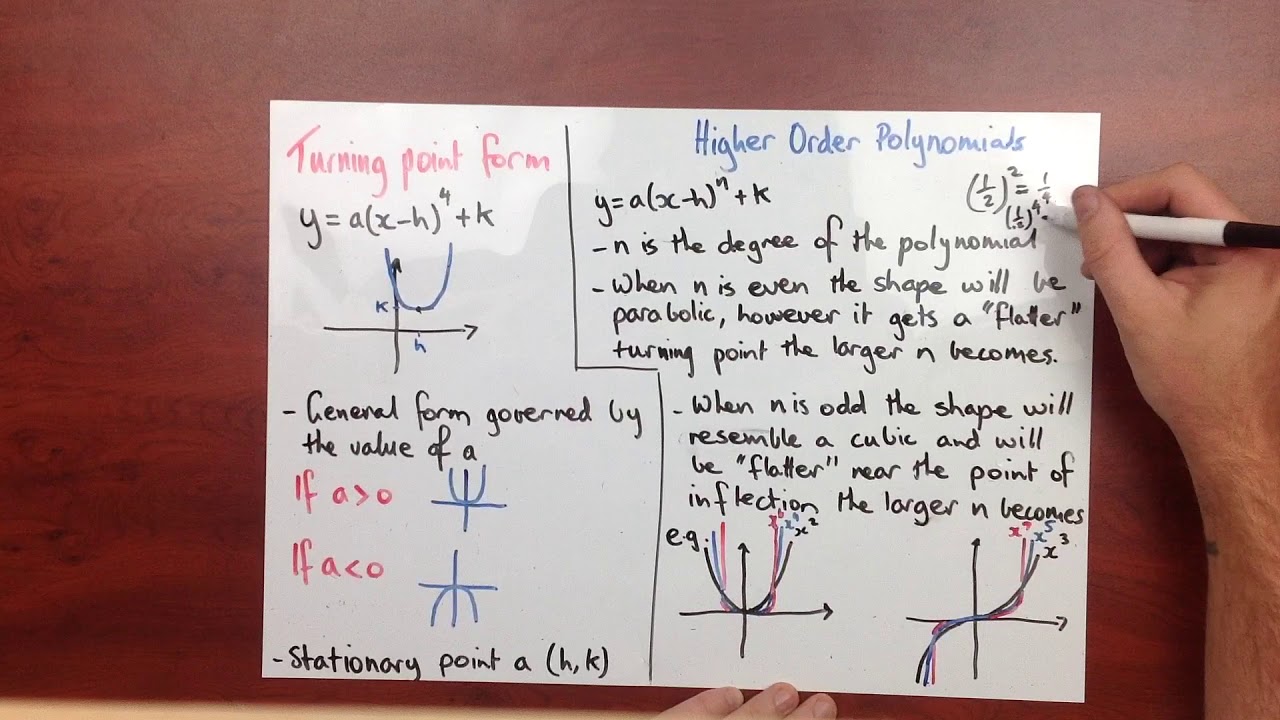 Turning point form
y = a(x-h)⁴ + k
k
h
- General form governed by
the value of a
If a > 0
If a < 0
- Stationary point a (h, k)
Higher Order Polynomials
y = a(x-h)ⁿ + k
(1/2)² = 1/4
(1/2)⁴ =
- n is the degree of the polynomial
- When n is even the shape will be
parabolic, however it gets a "flatter"
turning point the larger n becomes.
- When n is odd the shape will
resemble a cubic and will
be "flatter" near the point of
inflection the larger n becomes
e.g
x⁶ x⁴ x²
x⁷ x⁵ x³